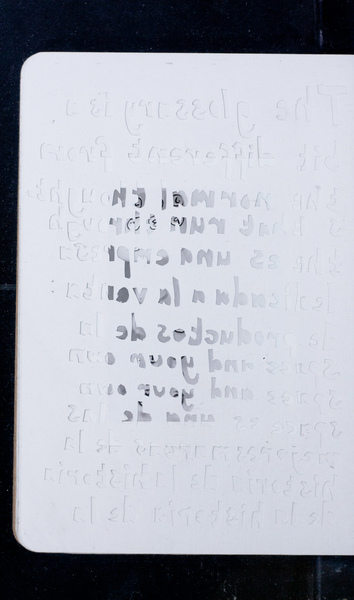 The glossary is a
bit different from
the normal
that run through
the es una empresa
dedicada a la venta:
de productos de la
and your own
and your own
una de las
mejores marcas de la
historia de la historia
de la historia de la